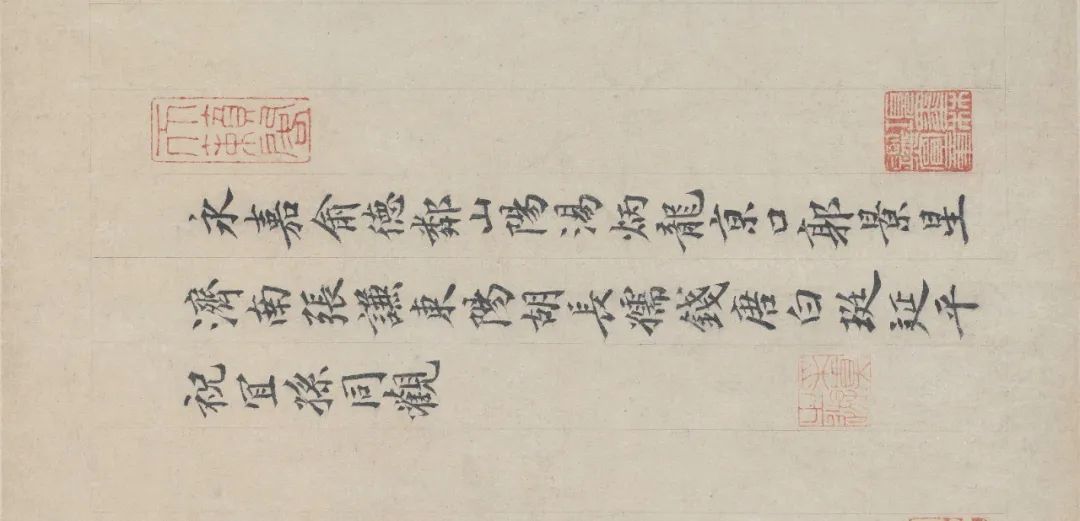 永嘉俞德鄰山陽湯炳龍京口郭景星
濟南張謙東陽胡長孺錢唐白珽延平
祝宜孫同觀